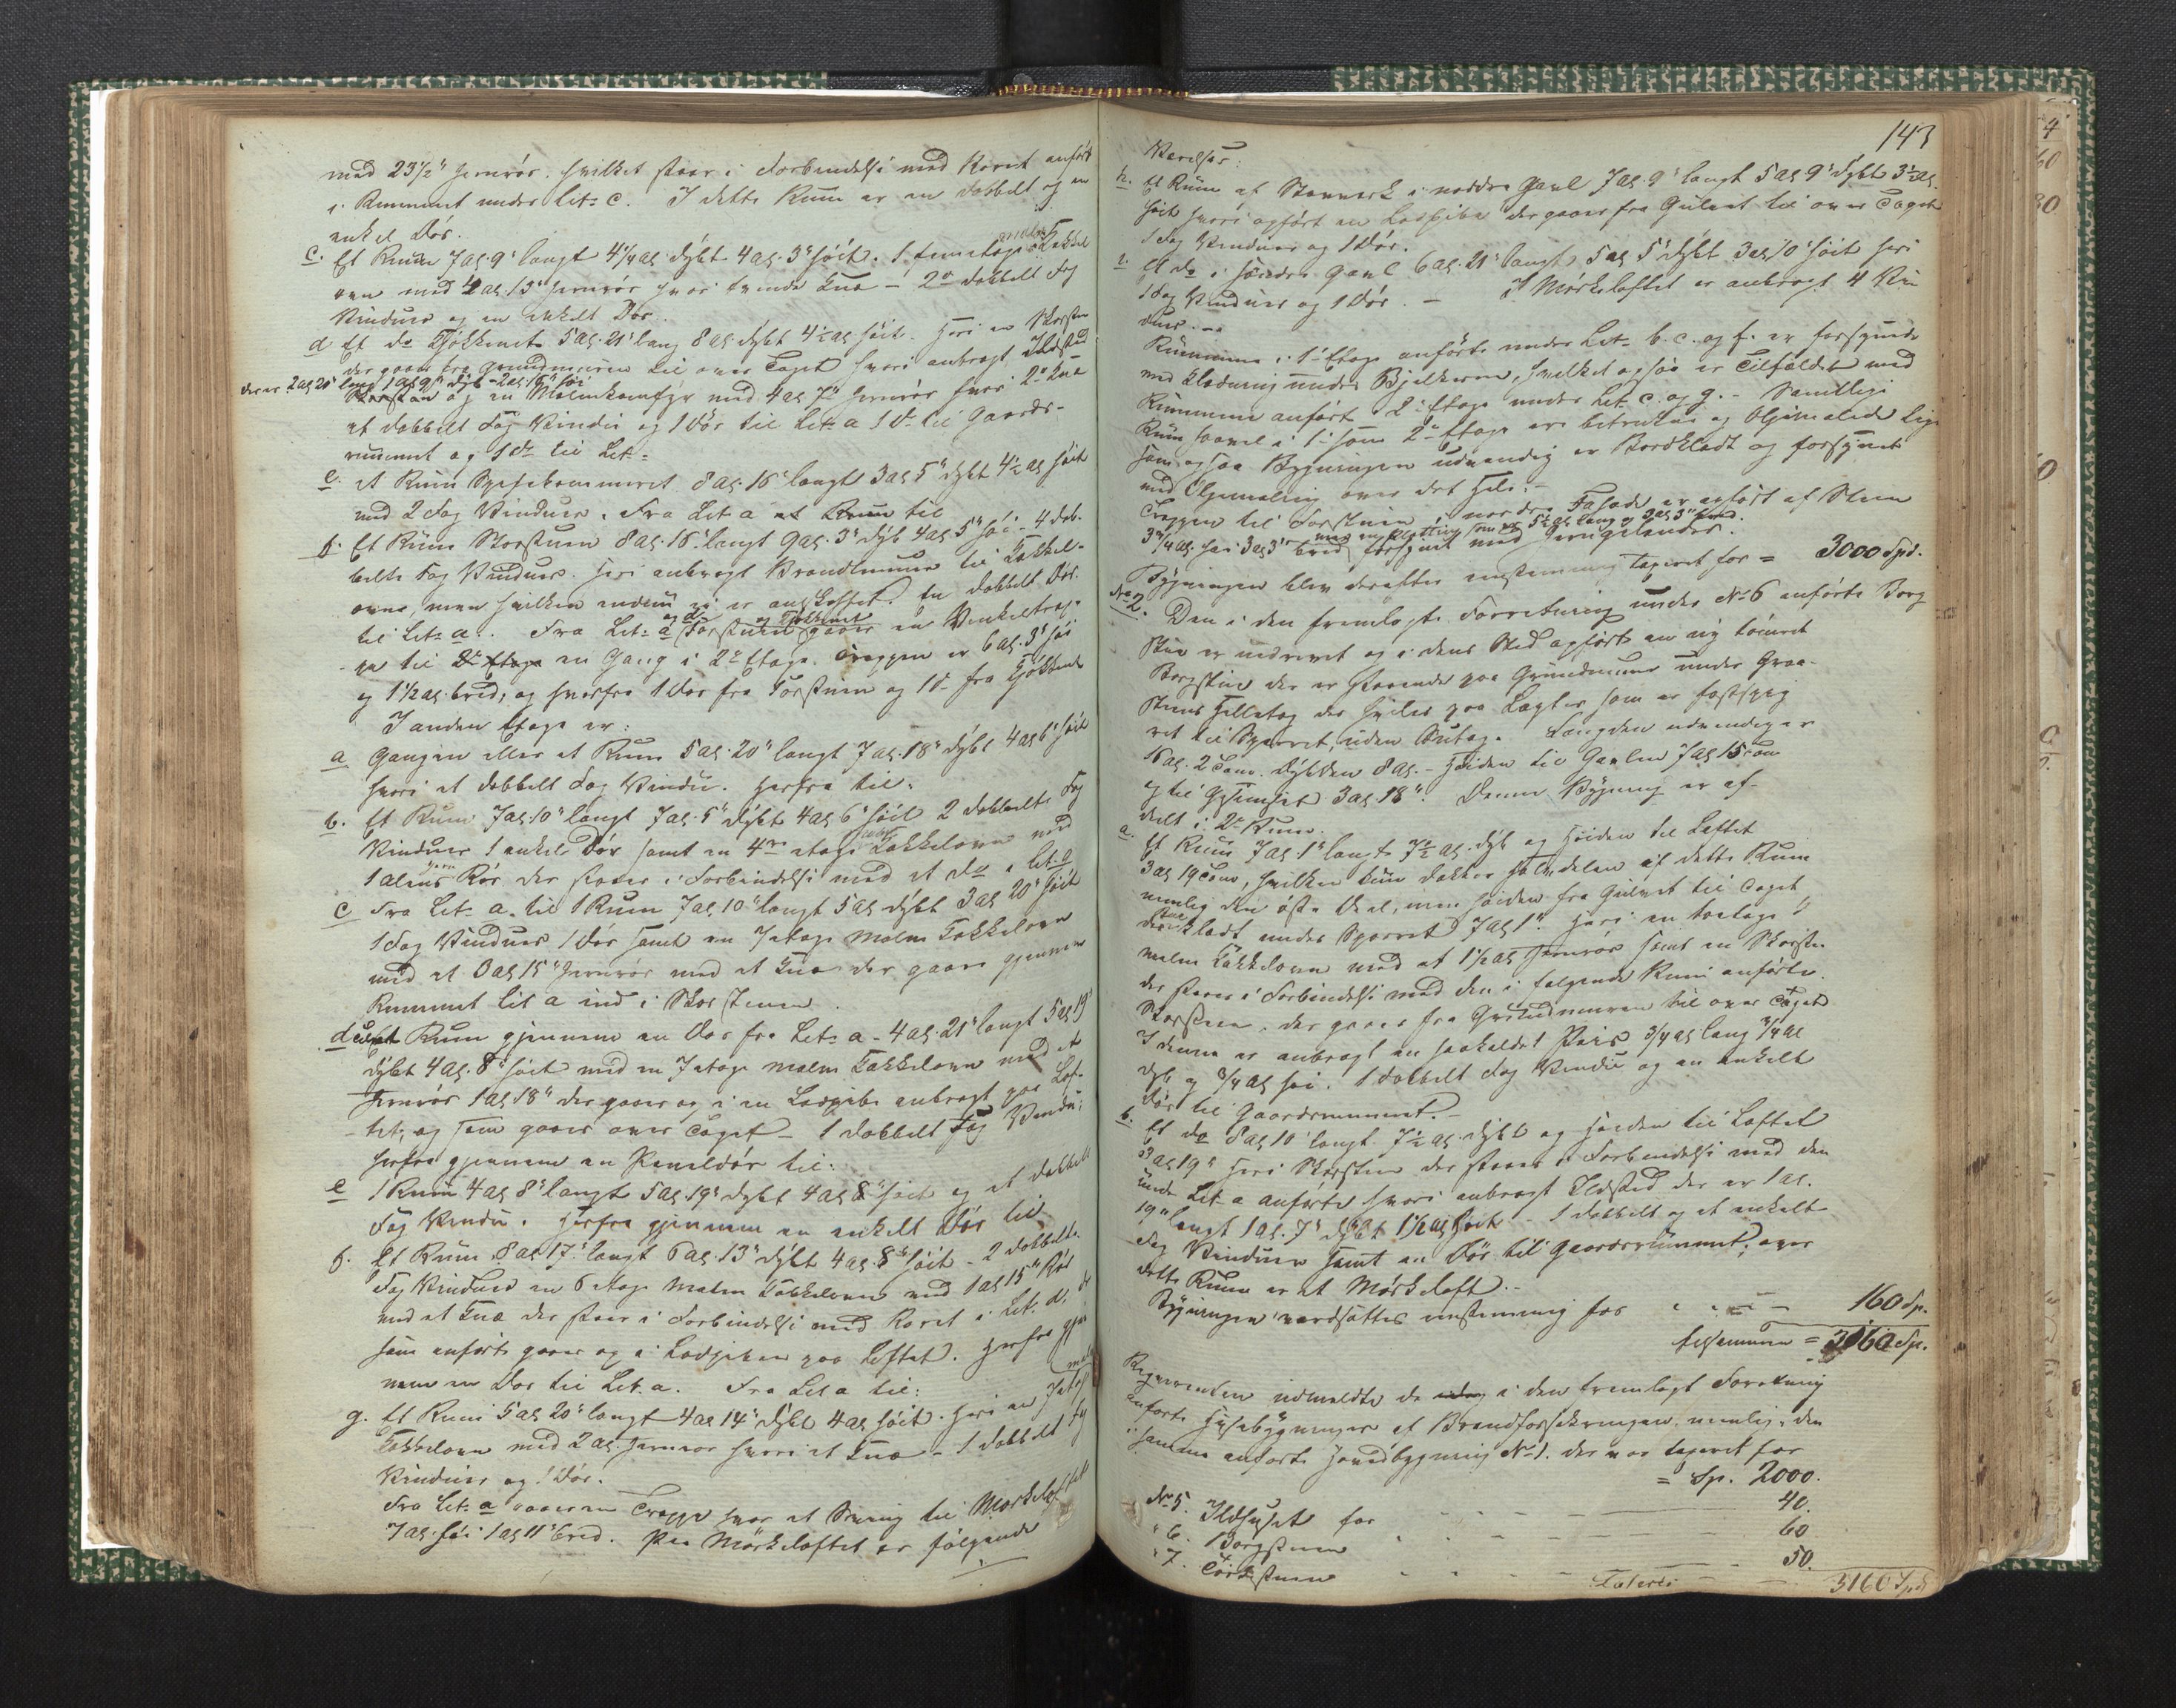 med 23 1/2" Jernrør. hvilket staar i Forbindelse med Røret anført
i Rummet under Lit: C. I dette Rum er en dobbelt og en
enkel Dør.
C. Et Rum 7 al 9" langt 4 1/4 al dybt 4 al. 3" høit. 1 femetage Kakkel
ovn med 4 al. 13" Jernrør hvori tvende Knæ - 2de dobbelt Fag
Vinduer og en enkelt Dør.
d Et do Kjøkkenet 5 al. 21" lang 8 al dybt 4 1/2 al høit. Heri en Skorsten
der gaar fra Grundmuren til over Taget hvori anbragt Ildsted
der er 2 al 21" lang 1 al 9" dyb 2 al 18" høi
Skorsten og en Malmkomfyr med 4 al 7" Jernrør hvori 2de Knæ
et dobbelt Fag Vindu og 1 Dør til Lit: a 1 do til Gaards-
rummet og 1 do til Lit:
e. et Rum Spisekammeret 8 al. 16" langt 3 al 5" dybt 4 1/2 al høit
med 2 Fag Vinduer. Fra Lit a et Rum til
f. Et Rum Storstuen 8 al. 16" langt 9 al. 3" dyb 4 al 5" høi - 4 dob-
belte Fag Vinduer. Heri anbragt Brandmuur til Kakkel-
ovne, men hvilken endnu ei er anskaffet. En dobbelt Dør
til Lit: a. Fra Lit: a Forstuen og Kjøkkenet gaaer en Vinkeltrap-
pe til 2de Etage en Gang i 2de Etage. Trappen er 6 al. 3" høi
og 1 1/2 al. bred, og hvorfra 1 Dør fra Forstuen og 1 do fra Kjøkkenet
I anden Etage er:
a Gangen eller et Rum 5 al. 20" langt 7 al. 18" dybt 4 al 6" høit
hvori et dobbelt Fag Vindu. Herfra til:
b. Et Rum 7 al. 10" langt 7 al. 5" dybt 4 al 6" høit 2 dobbelte Fag
Vinduer 1 enkelt Dør samt en 4re etage Kakkelovn med
1 Alens Rør der staaer i Forbindelse med et do i Lit. a
C Fra Lit: a. til 1 Rum 7 al. 10" langt 5 al dybt 3 al 20" høit
1 Fag Vinduer 1 Dør samt en 7 etage Malm Kakkelovn
med et 3 al 15" Jernrør med et Knæ der gaaer gjennem
Rummet Lit a ind i Skorstenen.
d et Rum gjennem en Dør fra Lit: a - 4 al. 21" langt 5 al 19"
dybt 4 al. 8" høit med en 7 etage Malm Kakkelovn med et
Jernrør 1 al 18" der gaaer op i en Lodpibe anbragt paa Lof-
tet, og som gaaer over Taget - 1 dobbelt Fag Vindu,
herfra gjennem en Paneldør til:
e 1 Rum 4 al 8" langt 5 al. 19" dybt 4 al 8" høit og et dobbelt
Fag Vindu. Herfra gjennem en enkelt Dør til
f. Et Rum 8 al 17" langt 6 al. 13" dybt 4 al. 8" høit - 2 dobbelte
Fag Vinduer en 6 etage Malm Kakkelovn med 1 al 15" Rør
med et Knæ der staaer i Forbindelse med Røret i Lit. d,
som anført gaaer op i Lodpiben paa Loftet. Herfra gjen
nem en Dør til Lit. a. Fra Lit a til:
g. Et Rum 5 al 20" langt 4 al 14" dybt 4 al høit. Heri en 7 etage
Kakkelovn med 2 al. Jernrør hvori et Knæ - 1 dobbelt Fag
Vinduer og 1 Dør.
Fra Lit: a gaaer en Trappe hvor et Sving til Mørkeloftet
7 al. høi 1 al 11" bred. Paa Mørkeloftet er følgende
143
Værelser:
h. Et Rum af Stavverk i nordre Gavl 7 al. 9" langt 5 al 9" dybt 3 1/2 al.
høit hvori opført en Lodpibe der gaaer fra Gulvet til over Taget
1 Fag Vinduer og 1 Dør.
i. Et do i søndre Gavl 6 al. 21" langt 5 al 5" dybt 3 al 10" høit heri
1 Fag Vinduer og 1 Dør. - I Mørkeloftet er anbragt 4 Vin
duer. -
Rummene i 1te Etage anførte under Lit: b. c. og f. er forsynede
med Klædning under Bjelkerne, hvilket ogsaa er Tilfældet med
Rummene anført i 2de Etage under Lit: c. og g. - Samtlige
Rum saavel i 1te som 2de Etage ere betrukne og Oljemalede lige
som ogsaa Bygningen udvendig er Bordklædt og forsynet
med Oljemaling over det Hele. -
Trappen til Forstuen i nordre Façade er opført af Steen
3 3/4 al. høi 3 al 3" bred forsynet med Jerngelænder.
med en Platting som er 5 1/2 al lang og 2 al 3" bred.
Bygningen blev derefter enstemmig taxeret for = 3000 Spd.
No 2. Den i den fremlagte Forretning under No 6 anførte Borg
Stue er nedrevet og i dens Sted opført en ny tømret
Borgstue der er staaende paa Grundmuur under Graa-
Steens Helletag der hviler paa Lægter som er fastspig
ret til Sperret, uden Sutag. Længden udvendig er
16 al. 2 Tom. Dybden 8 al. - Høiden til Gavlen 7 al 15 Tom
og til Gesimset 3 al. 18". Denne Bygning er af-
deelt i 2de Rum.
a. Et Rum 7 al. 1" langt 7 1/2 al. dyb og Høiden til Loftet
3 al 19 Tom, hvilken kun dækker Halvdelen af dette Rum
nemlig den øste Deel, men Høiden fra Gulvet til Taget
klædt under Sperret 7 al 1". Heri en toetage
Malm Kakkelovn med et 1 1/2 al Jernrør samt en Skorsten
der staaer i Forbindelse med den i følgende Rum anførte
Skorsteen, der gaaer fra Grundmuren til over Taget
I denne er anbragt en saakaldet Peis 3/4 al lang 3/4 al
dyb og 3/4 al høi. 1 dobbelt Fag Vindu og en enkelt
Dør til Gaardsrummet. -
b. Et do 8 al 10" langt 7 1/2 al. dybt og Høiden til Loftet
3 al 19" heri Skorsten der staaer i Forbindelse med den
under Lit. a anførte hvori anbragt Ildsted der er 1 al.
19" langt 1 al. 7" dybt 1 1/2 al høit - 1 dobbelt og et enkelt
Fag Vinduer samt en Dør til Gaardsrummet, over
dette Rum er et Mørkeloft. -
Bygningen værdsættes enstemmig for 160 Sp.
tilsammen = 3160 Sp.
Reqvirenten udmeldte de i den fremlagt Forretning
anførte Huusebygninger af Brandforsikringen, nemlig: den
i samme anførte Hovedbygning No 1. der var taxeret for
= Sp. 2000.
No 5. Ildhuset for 40.
" 6. Borgstuen 60
" 7. 50.
Lateris 3160 Spd